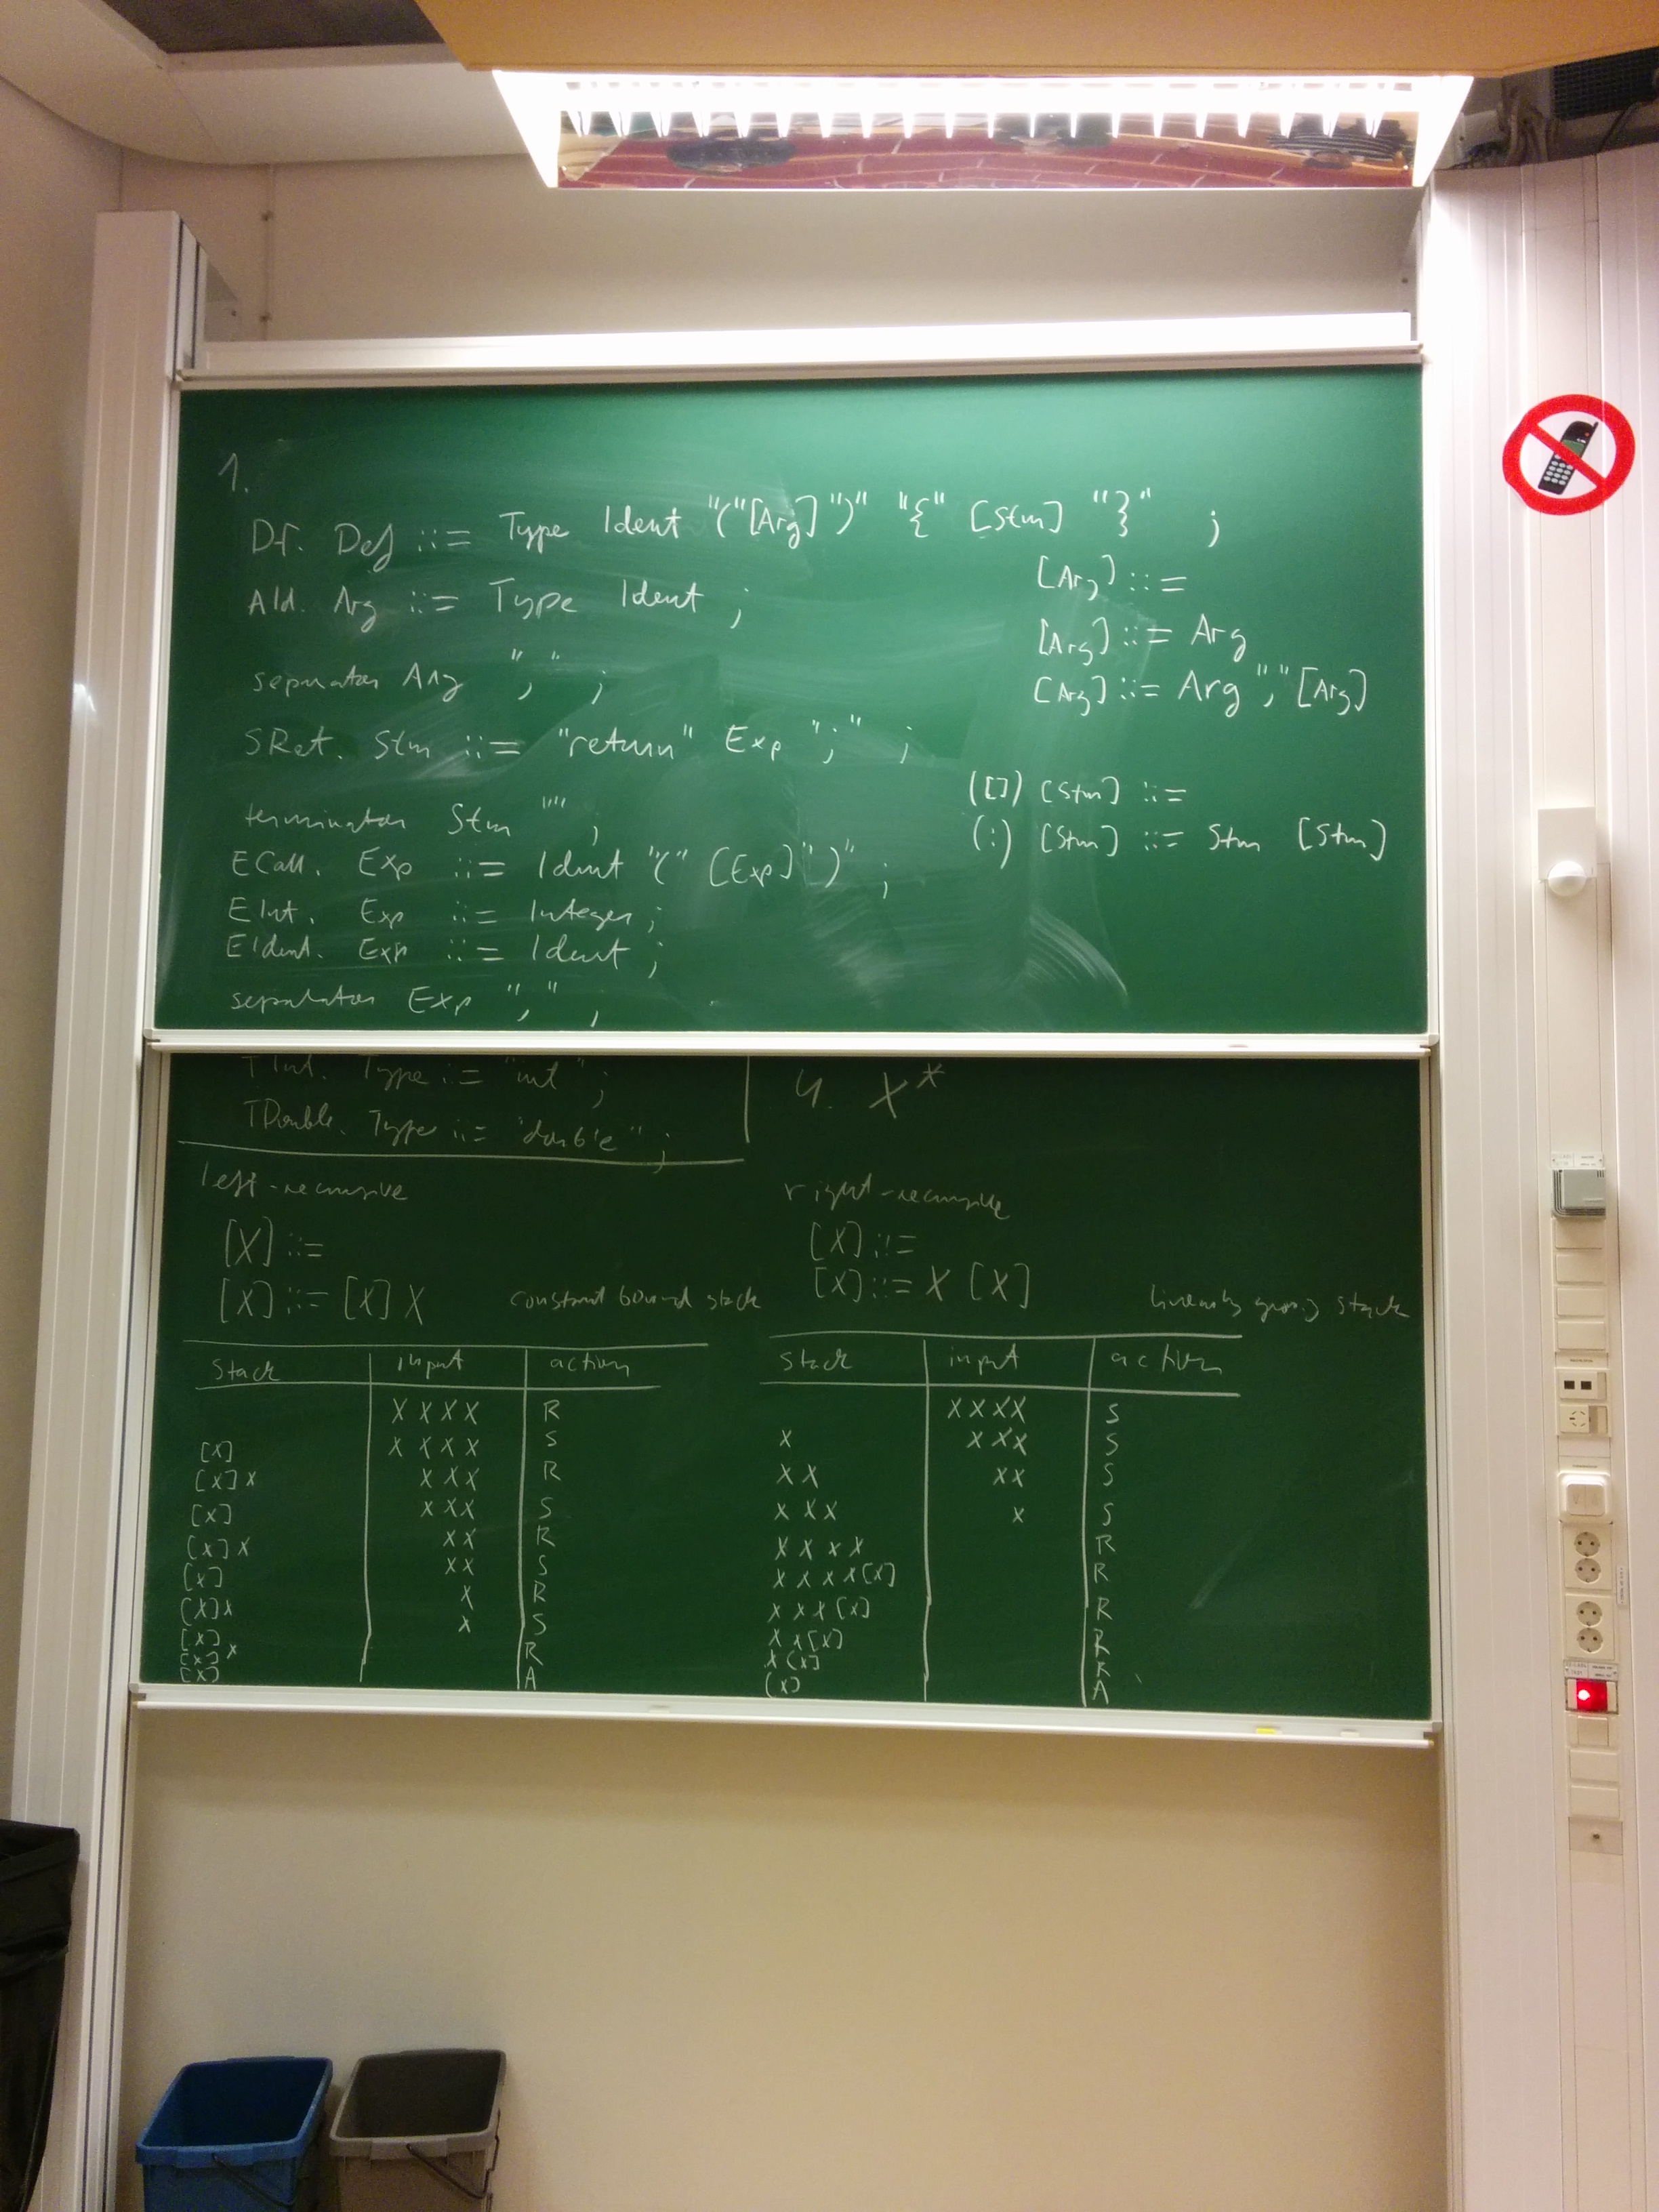 1.
Df. Def ::= Type Ident "(" [Arg] ")" "{" [Stm] "}" ;
Ald. Arg ::= Type Ident ;
separator Arg "," ;
SRet. Stm ::= "return" Exp ";" ;
terminator Stm "" ;
ECall. Exp ::= Ident "(" [Exp] ")" ;
EInt. Exp ::= Integer ;
EIdent. Exp ::= Ident ;
separator Exp "," ;
[Arg] ::=
[Arg] ::= Arg
[Arg] ::= Arg "," [Arg]
([]) [Stm] ::=
(:) [Stm] ::= Stm [Stm]
TInt. Type ::= "int" ;
TDouble. Type ::= "double" ;
4. X*
left-recursive
[X] ::=
[X] ::= [X] X
constant bound stack
stack input action
X X X X R
[X] X X X X S
[X] X X X X R
[X] X X X S
[X] X X X R
[X] X X S
[X] X X R
[X] X S
[X] X R
[X] A
right-recursive
[X] ::=
[X] ::= X [X]
linearly stack
stack input action
X X X X S
X X X X S
X X X X S
X X X X S
X X X X R
X X X X [X] R
X X X [X] R
X X [X] R
X [X] R
[X] A